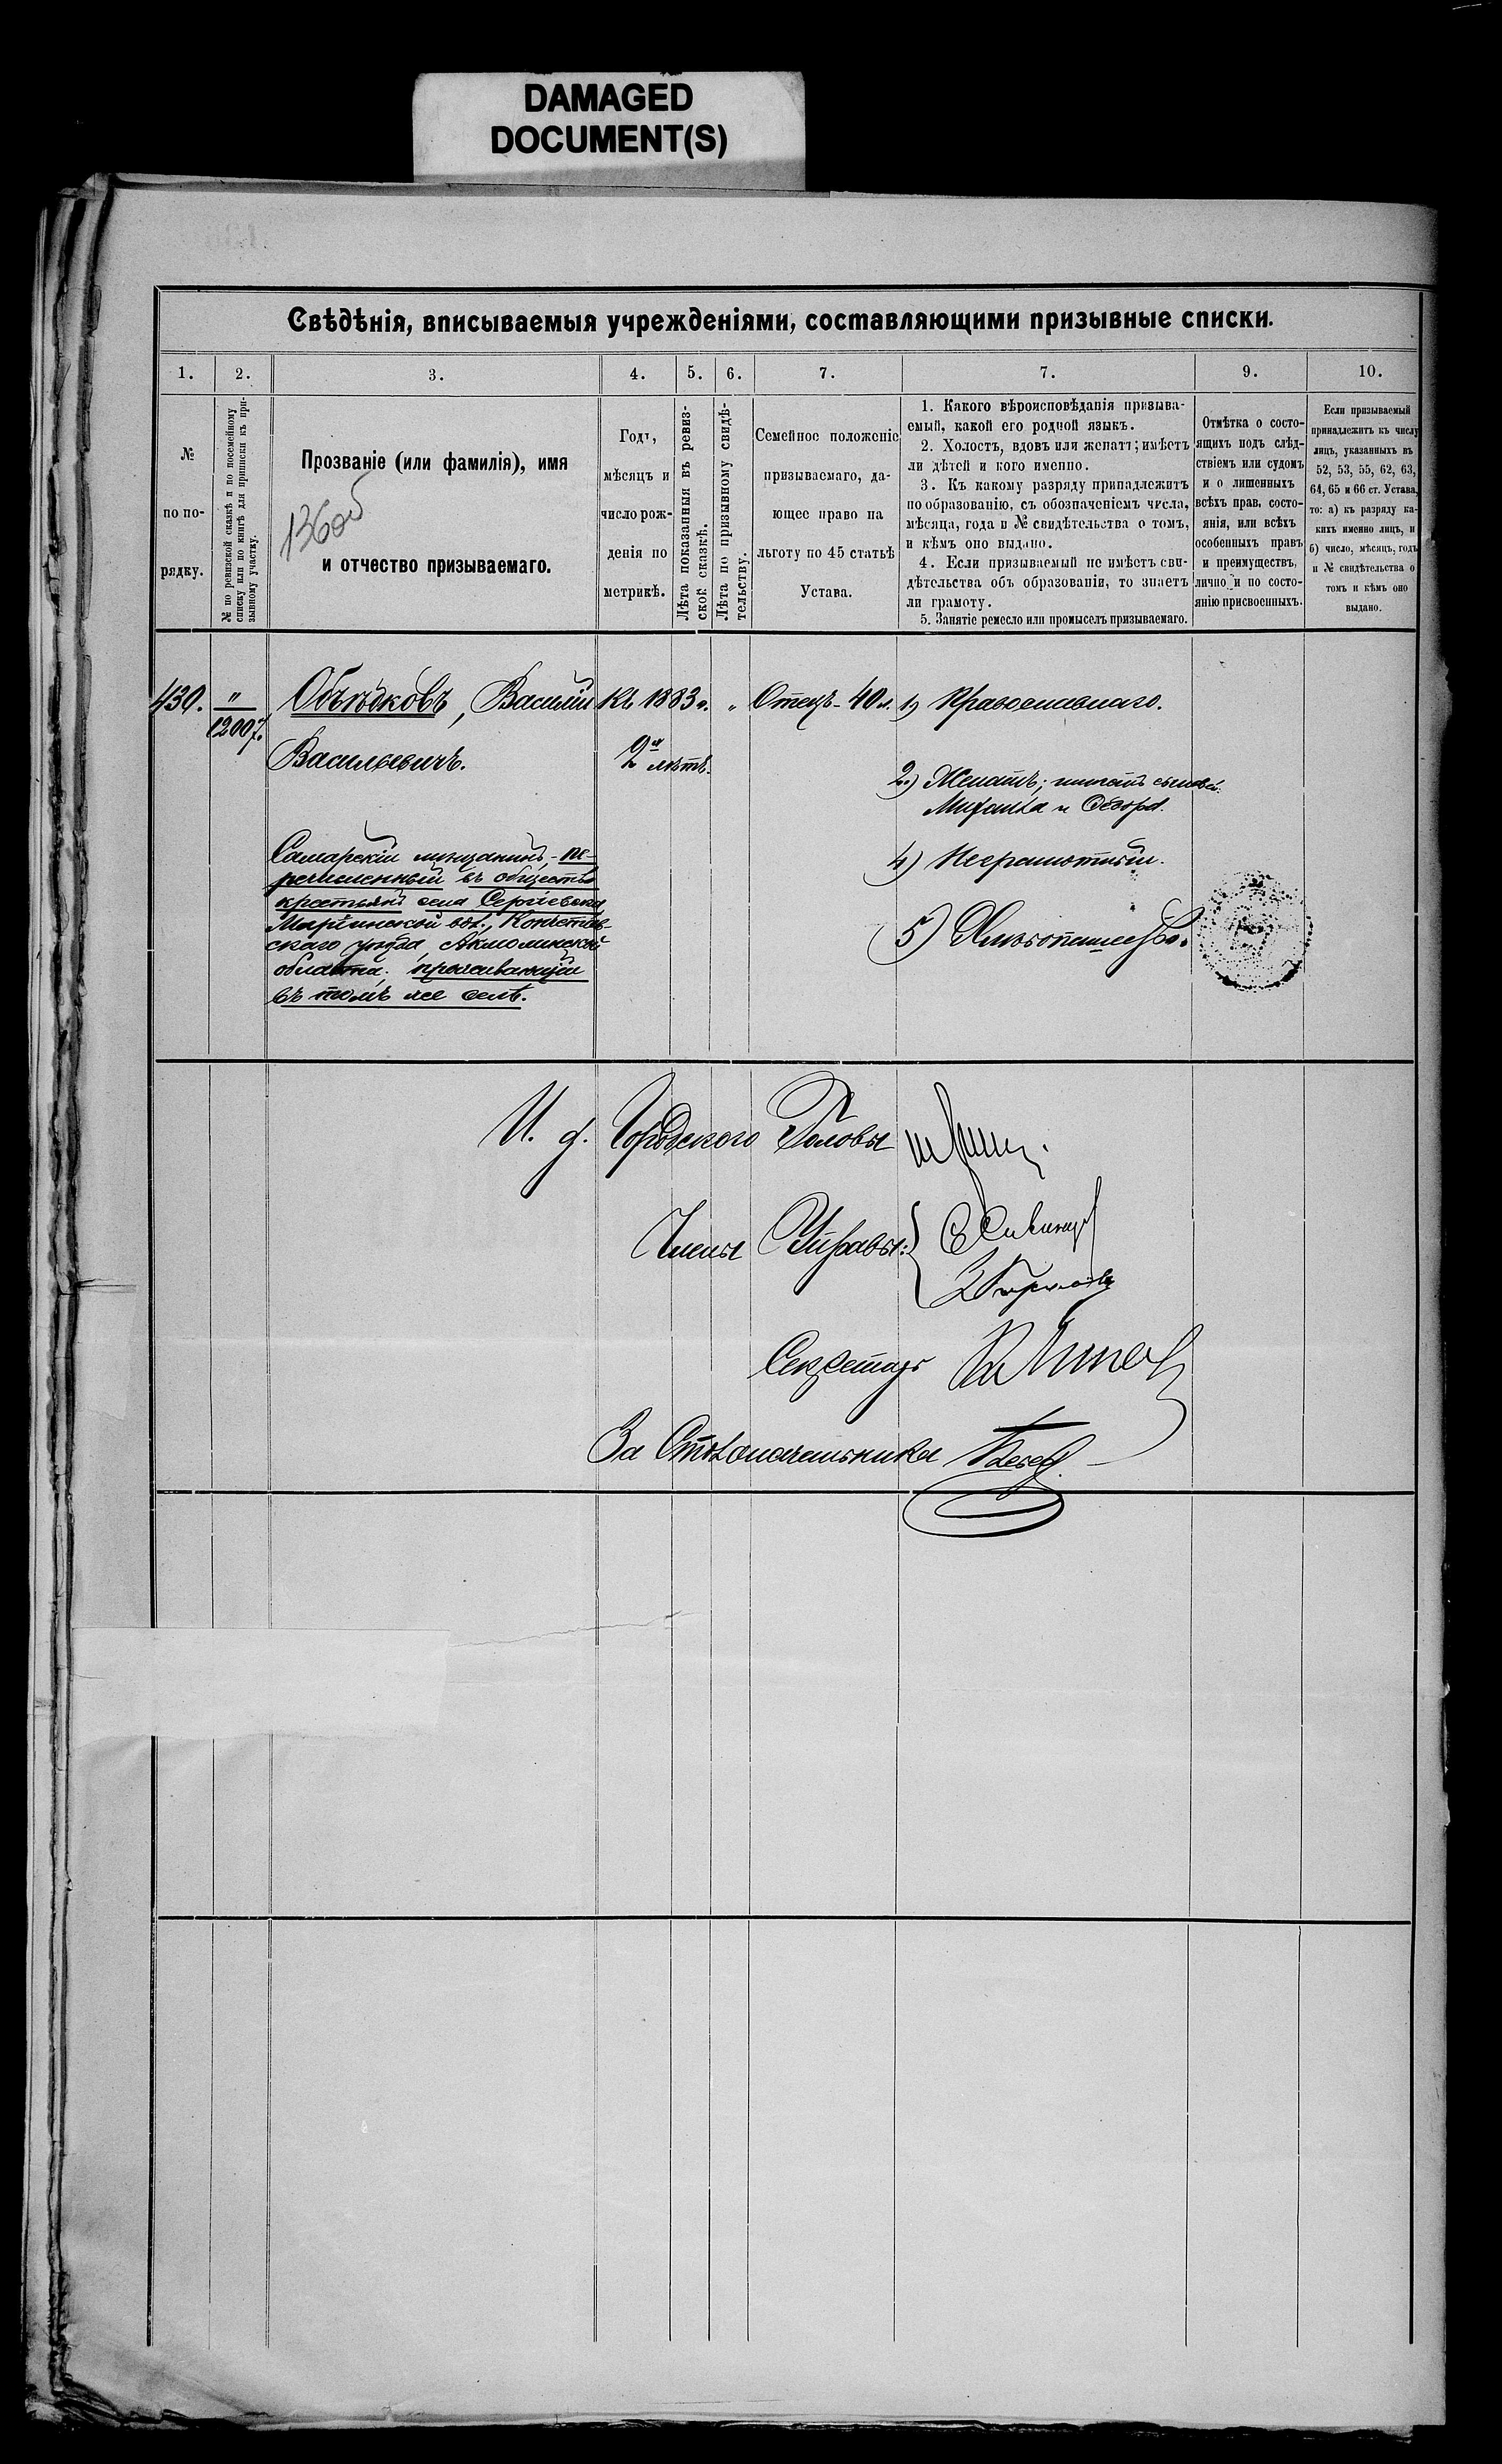 DAMAGED
DOCUMENT(S)
Свѣдѣнія, вписываемыя учрежденіями, составляющими призывные списки.
1. 2. 3. 4. 5. 6. 7. 7. 9. 10.
№
по по-
рядку.
№ по ревизской сказкѣ и по посемейному
списку или по книгѣ для приписки къ при-
зывному участку.
Прозваніе (или фамилія), имя
136об
и отчество призываемаго.
Годъ,
мѣсяцъ и
число рож-
денія по
метрикѣ.
Лѣта показанныя въ ревиз-
ской сказкѣ.
Лѣта по призывному свидѣ-
тельству.
Семейное положеніе
призываемаго, да-
ющее право на
льготу по 45 статьѣ
Устава.
1. Какого вѣроисповѣданія призыва-
емый, какой его родной языкъ.
2. Холостъ, вдовъ или женатъ; имѣетъ
ли дѣтей и кого именно.
3. Къ какому разряду принадлежитъ
по образованію, съ обозначеніемъ числа,
мѣсяца, года и № свидѣтельства о томъ,
и кѣмъ оно выдано.
4. Если призываемый не имѣетъ сви-
дѣтельства объ образованіи, то знаетъ
ли грамоту.
5. Занятіе ремесло или промыселъ призываемаго.
Отмѣтка о состо-
ящихъ подъ слѣд-
ствіемъ или судомъ
и о лишенныхъ
всѣхъ прав, состо-
янія, или всѣхъ
особенныхъ правъ
и преимуществъ,
лично и по состо-
янію присвоенныхъ.
Если призываемый
принадлежитъ къ числу
лицъ, указанныхъ въ
52, 53, 55, 62, 63,
64, 65 и 66 ст. Устава,
то: а) къ разряду ка-
кихъ именно лицъ, и
б) число, мѣсяцъ, годъ
и № свидѣтельства о
томъ и кѣмъ оно
выдано.
430.
"
12007.
Объѣдковъ, Василій
Васильевичъ.
Самарскій мѣщанинъ, - пе-
речисленный въ общество
крестьянъ села Сергіевска
Маріинской вол., Кокчетав-
скаго уѣзда, Акмолинской
области. проживающій
въ томъ же селѣ.
Къ 1883 г.
2хъ лѣтъ.
"
Отецъ - 40 л.
1) Православнаго.
2) Женатъ; имѣетъ сыновей:
Михаила и Ѳедора.
4) Неграмотный.
5) Хлѣбопашество.
И. д. Городского Головы
Члены Управы:
Секретарь
За Столоначальника